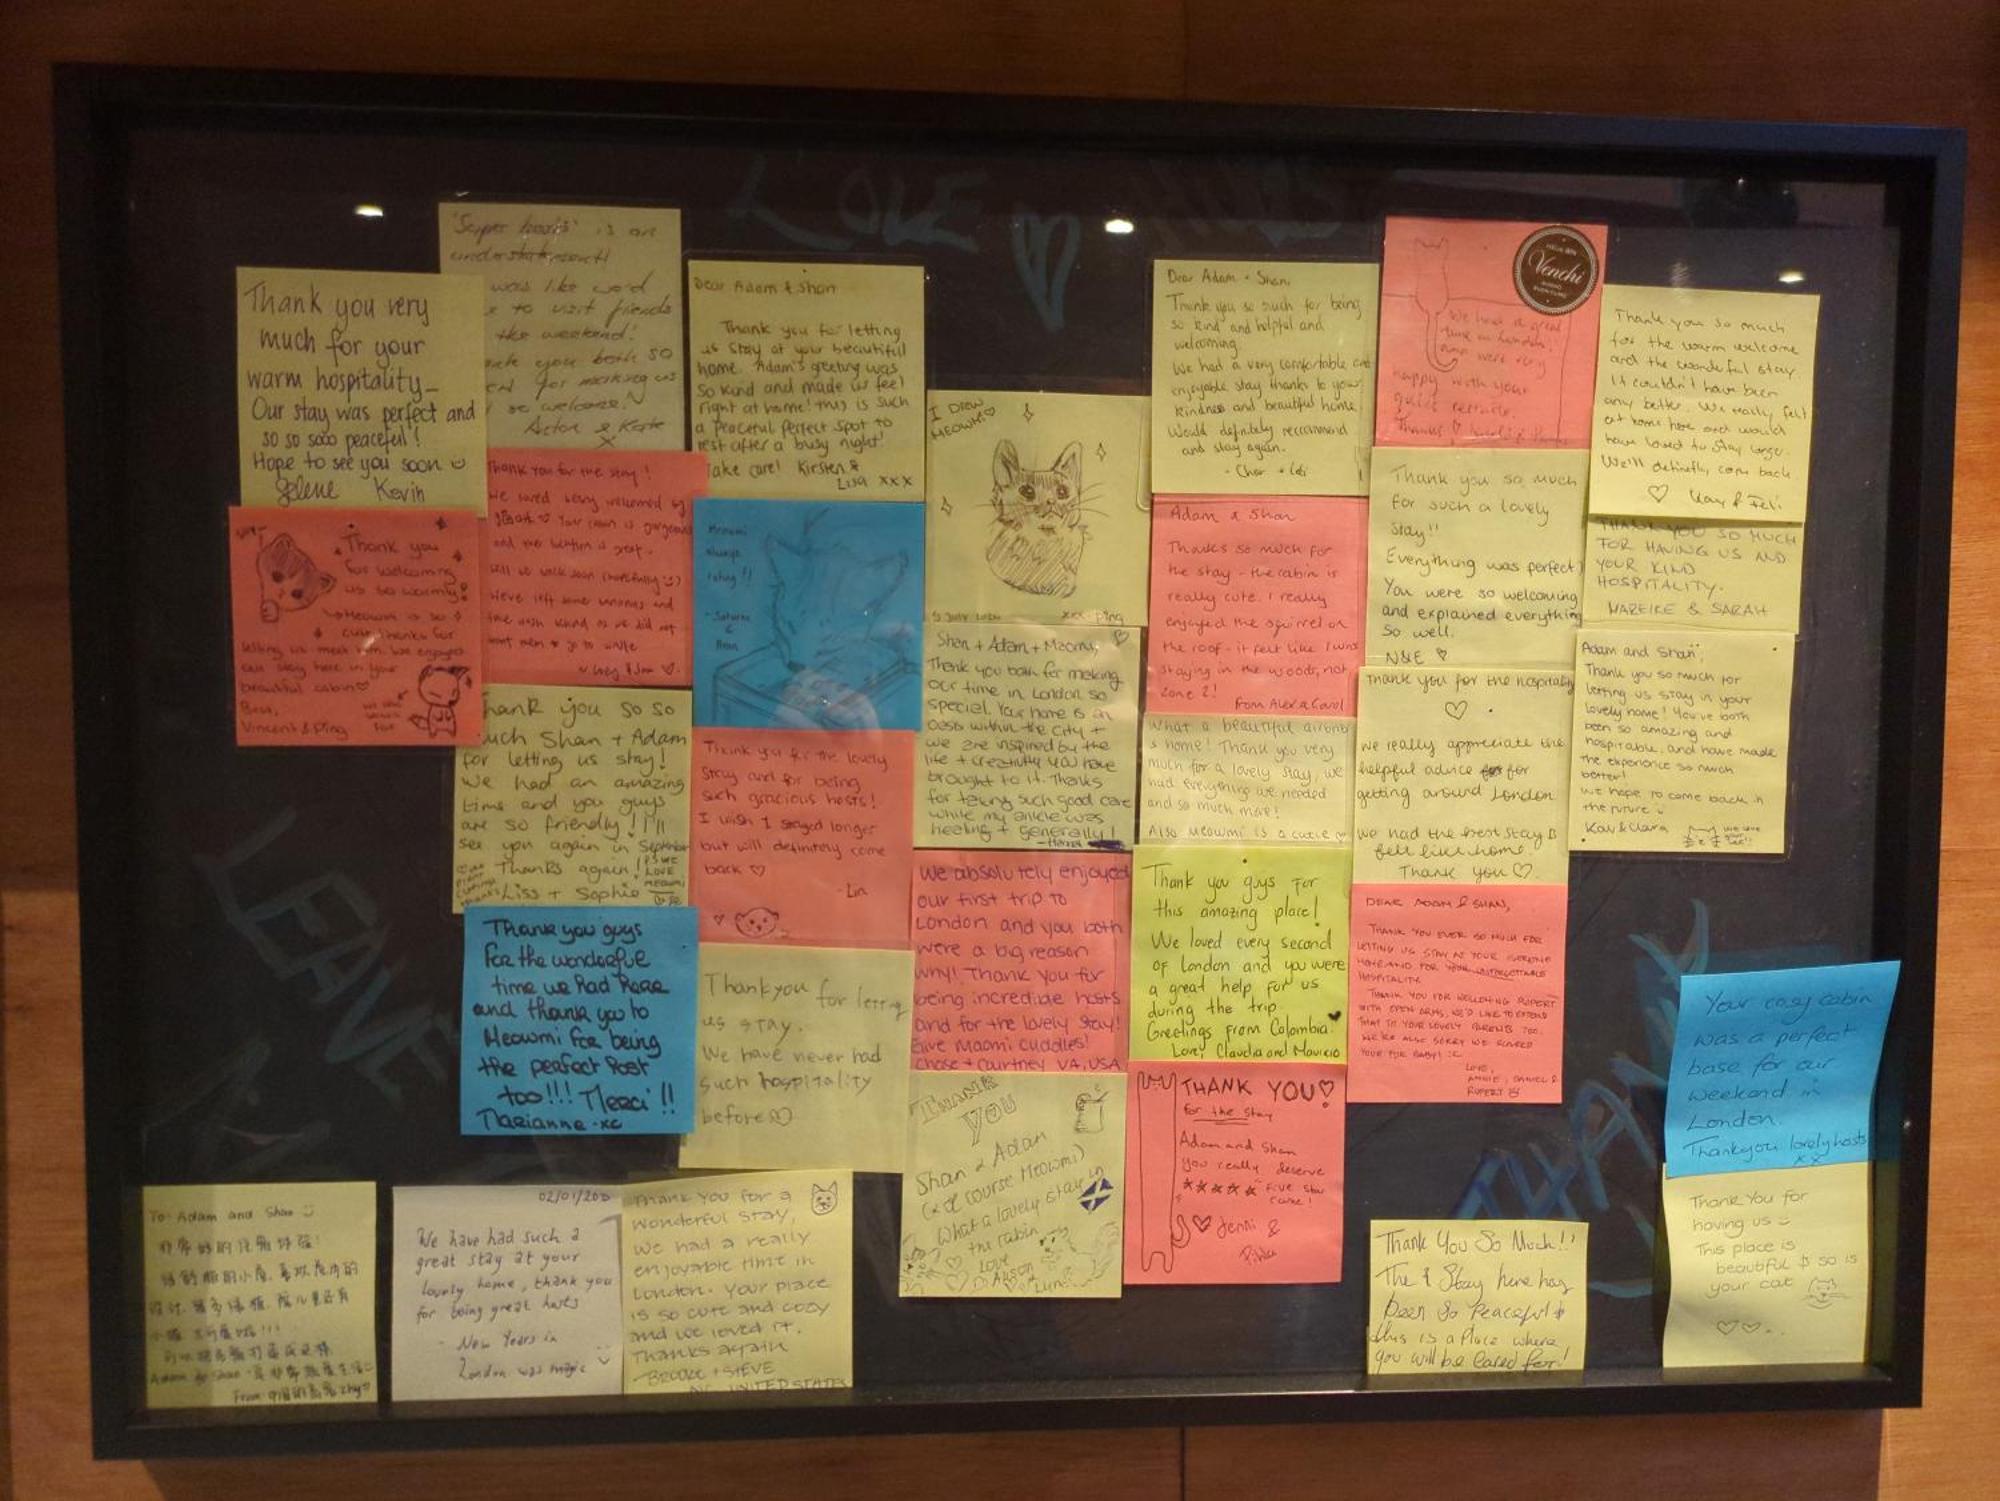 LOVE HUGS
LEAVE
'Super hosts' is an
understatement!
was like word
to visit friends
the weekend!
you both so
for making us
so welcome.
Kate
X
Thank you very
much for your
warm hospitality_
Our stay was perfect and
so so sooo peaceful!
Hope to see you soon
Kevin
Dear Adam & Shan
Thank you for letting
us stay at your beautiful
home. Adam's greeting was
so kind and made us feel
right at home! this is such
a peaceful perfect spot to
rest after a busy night!
Take care! Kirsten &
Lisa xxx
I DREW
MEOWMI
5 JULY 2024
xxx Ping
Dear Adam + Shan,
Thank you so such for being
so kind and helpful and
welcoming.
We had a very comfortable and
enjoyable stay thanks to your
kindness and beautiful home.
Would definitely recommend
and stay again.
Venchi
We had a great
time in London!
very
happy with your
Thanks
Thank you so much
for the warm welcome
and the wonderful stay.
It couldn't have been
any better. We really felt
at home here and would
have loved to stay longer.
We'll definetly come back
Kay & Feli
Thank you
for welcoming
us so warmly!
Meowmi is so
cute thanks for
letting us meet him. We enjoyed
our stay here in your
beautiful cabin
Best,
Vincent & Ping
Thank you for the stay!
We loved being welcomed by
you. Your cabin is gorgeous
and the location is great.
Will be back soon (hopefully :))
We've left some
Meowmi
always
eating!!
Adam & Shan
Thanks so much for
the stay - the cabin is
really cute. I really
enjoyed the squirrel on
the roof - it felt like I was
staying in the woods, not
zone 2!
from Alex & Carol
Thank you so much
for such a lovely
stay!!
Everything was perfect!
You were so welcoming
and explained everything
so well.
N&E
THANK YOU SO MUCH
FOR HAVING US AND
YOUR KIND
HOSPITALITY.
MAREIKE & SARAH
Thank you so so
much Shan + Adam
for letting us stay!
We had an amazing
time and you guys
are so friendly! I'll
see you again in September
Thanks again!
Liss + Sophie
PS WE
LOVE
MEOWMI
Thank you for the lovely
stay and for being
such gracious hosts!
I wish I stayed longer
but will definitely come
back
- Lin
Shan + Adam + Maomi,
Thank you both for making
our time in London so
special. Your home is an
oasis within the city +
we are inspired by the
life + creativity you have
brought to it. Thanks
for taking such good care
while my ankle was
healing + generally!
What a beautiful airbnb
& home! Thank you very
much for a lovely stay, we
had everything we needed
and so much more!
Also Meowmi is a cutie
Thank you for the hospitality
we really appreciate the
helpful advice for
getting around London
we had the best stay &
felt like home.
Thank you
Adam and Shan,
Thank you so much for
letting us stay in your
lovely home! You've both
been so amazing and
hospitable, and have made
the experience so much
better!
We hope to come back in
the future
Kay & Clara
We love
your
cat!
Thank you guys
for the wonderful
time we had here
and thank you to
Meowmi for being
the perfect host
too!!! Merci!!
Marianne -xc
Thankyou for letting
us stay.
We have never had
such hospitality
before
We absolutely enjoyed
our first trip to
London and you both
were a big reason
why! Thank you for
being incredible hosts
and for the lovely stay!
Give Maomi cuddles!
Chase + Courtney VA, USA
Thank you guys for
this amazing place!
We loved every second
of London and you were
a great help for us
during the trip
Greetings from Colombia.
Love, Claudia and Mauricio
DEAR ADAM & SHAN,
THANK YOU EVER SO MUCH FOR
LETTING US STAY AT YOUR AWESOME
HOME AND FOR YOUR UNFORGETTABLE
HOSPITALITY.
THANK YOU FOR WELCOMING RUPERT
WITH OPEN ARMS, WE'D LIKE TO EXTEND
THAT TO YOUR LOVELY PARENTS TOO.
WE'RE ALSO SORRY WE SCARED
YOUR FUR BABY! :(
LOVE,
ANNIE, DANIEL &
RUPERT
Your cosy cabin
was a perfect
base for our
weekend in
London.
Thankyou lovely hosts
xx
THANK
YOU
Shan & Adam
(& of course Meowmi)
What a lovely stay in
the cabin
Love
Alison
THANK YOU
for the stay
Adam and Shan
you really deserve
Five star
Jenni &
To: Adam and Shan
From 中国的
02/01/20
We have had such a
great stay at your
lovely home, thank you
for being great hosts
- New Years in
London was magic
Thank you for a
wonderful stay,
we had a really
enjoyable time in
London. Your place
is so cute and cozy
and we loved it.
Thanks again
BROOKE + STEVE
NC, UNITED STATES
Thank You So Much!!
The Stay here has
been so Peaceful &
this is a Place where
you will be cared for!
Thank You for
having us
This place is
beautiful & so is
your cat